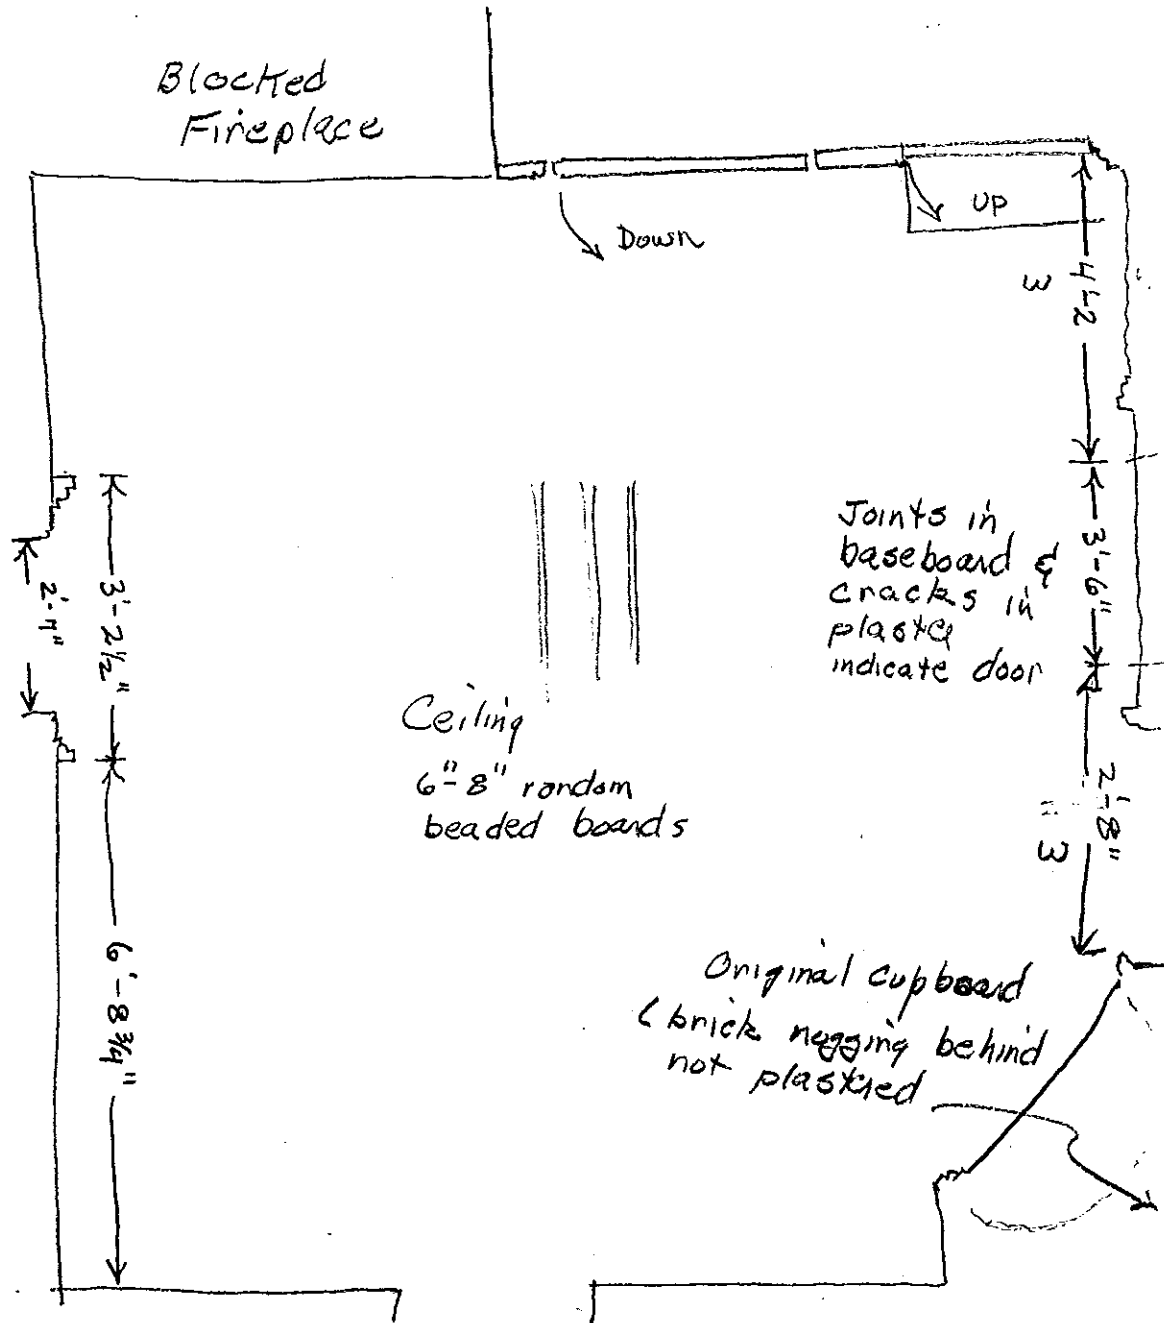 Blocked
Fireplace
UP
Down
4'-2
3
3'-6"
Joints in
baseboard &
cracks in
plaster
indicate door
3'-2½"
2'-7"
Ceiling
6"-8" random
beaded boards
2'-8"
3
6'-8¾"
Original cupboard
(brick nogging behind
not plastered